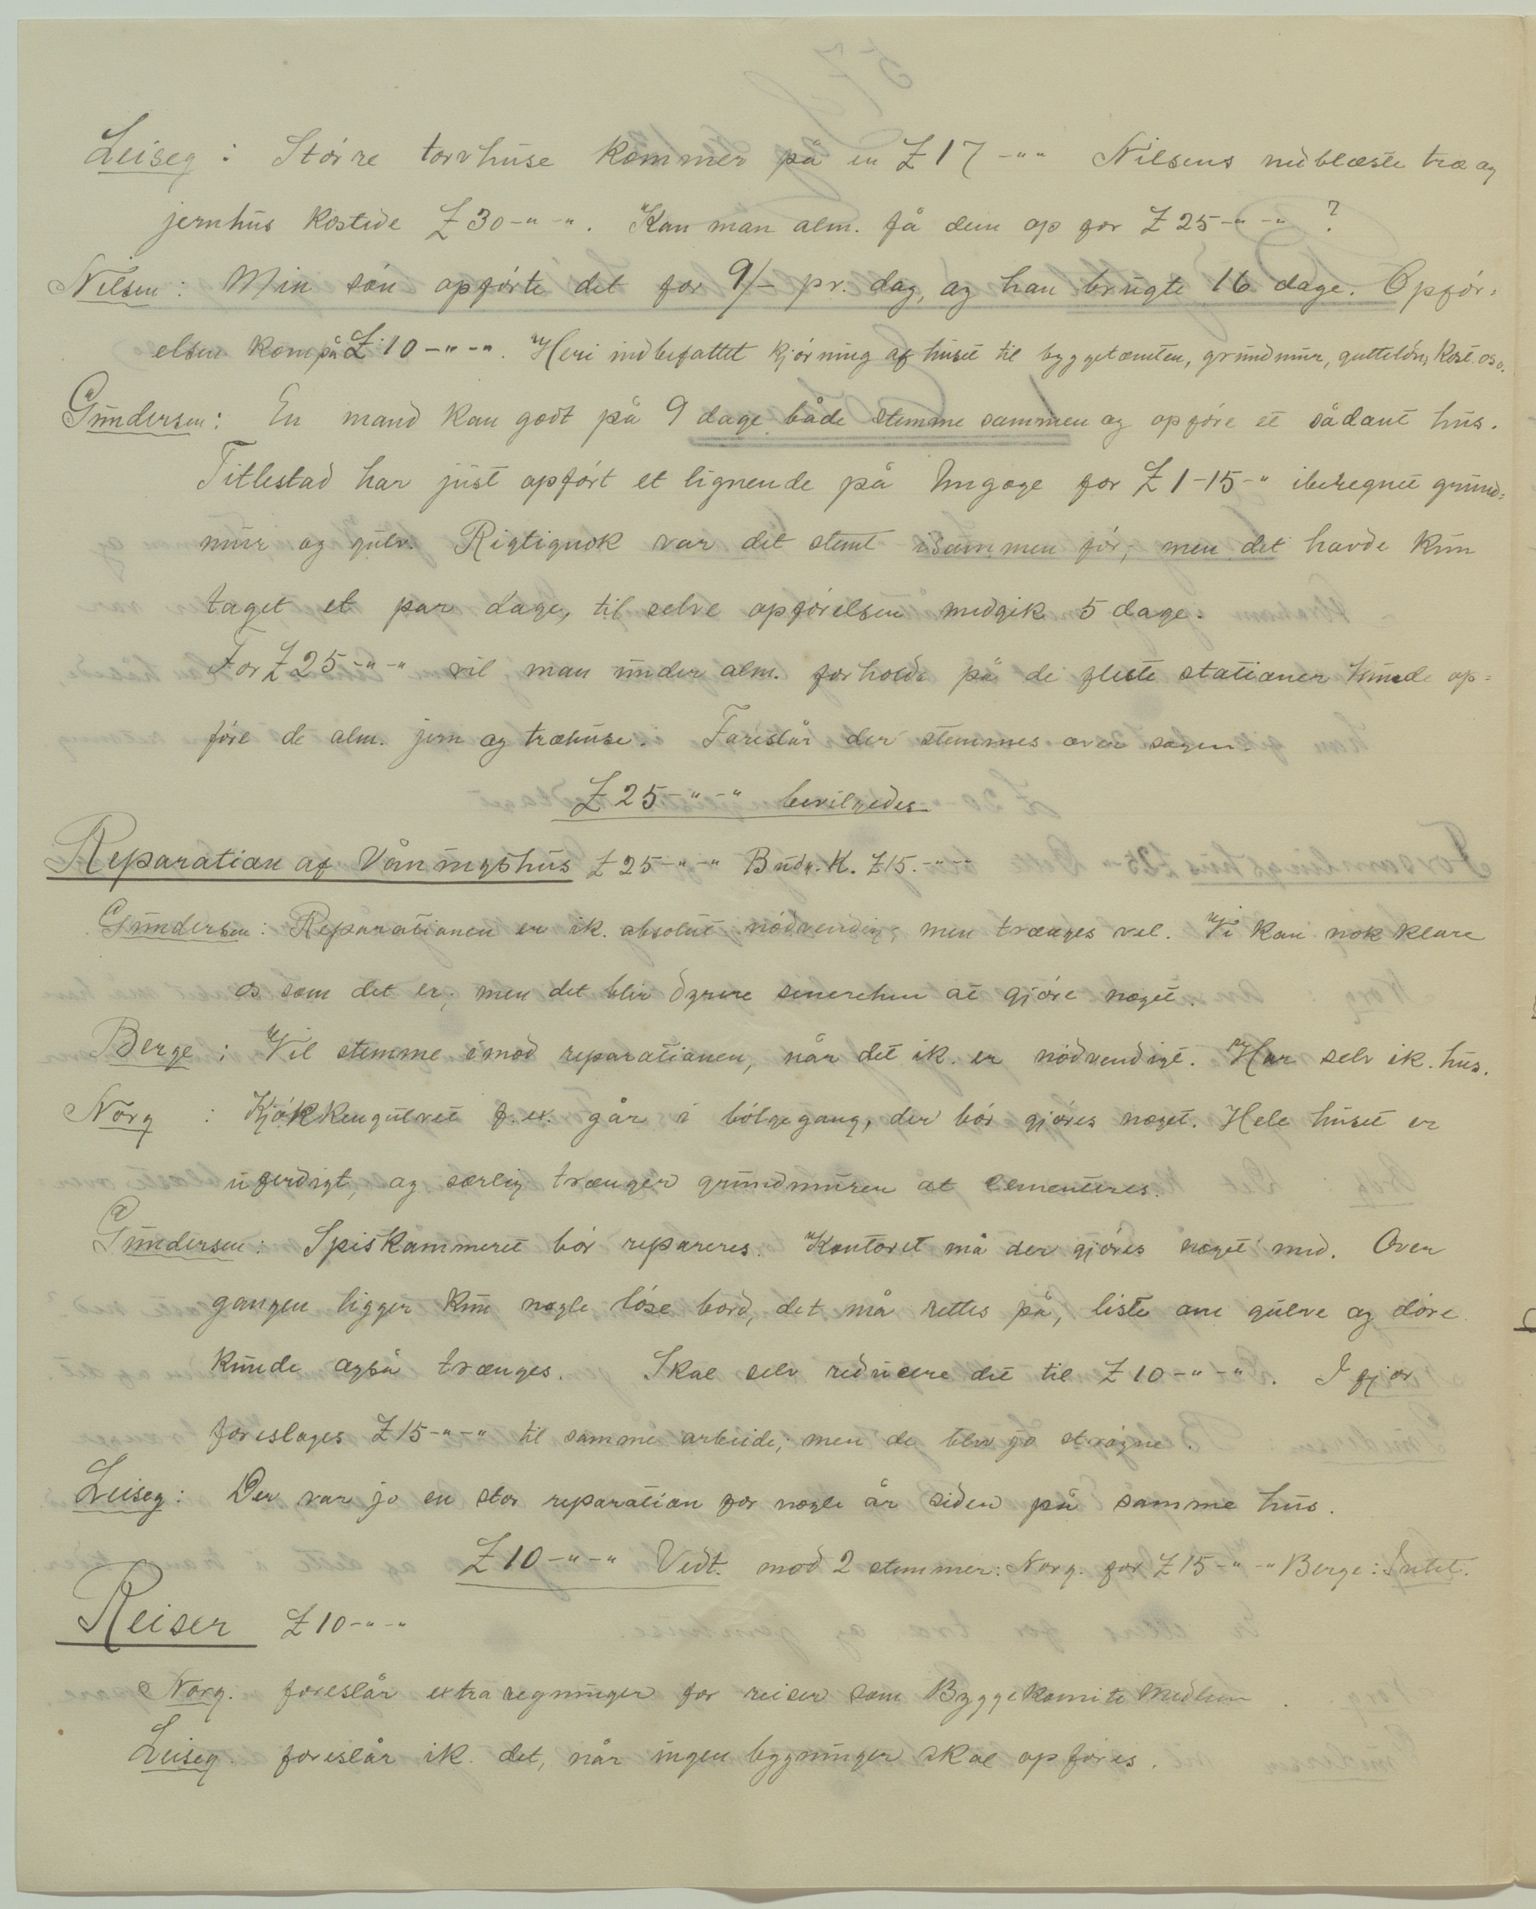 Leiseg: Större torvhuse kommer på en £17-"-" Nilsens nedblæste træ og
jernhus kostede £30-"-". Kan man alm. få dem op for £25-"-"?
Nilsen: Min sön opförte det for 9/- pr. dag, og han brugte 16 dage. Opför-
elsen kom på £10-"-". Heri indbefattet kjörning af huset til byggetomten, grundmur, guttelön, kost oso.
Gundersen: En mand kan godt på 9 dage både stemme sammen og opföre et sådant hus.
Titlestad har just opfört et lignende på Ungoye for £1-15-" iberegnet grund-
mur og gulv. Rigtignok var det stemt sammen för, men det havde kun
taget et par dage, til selve opförelsen medgik 5 dage.
For £25-"-" vil man under alm. forhold på de fleste stationer kunde op-
före de alm. jern og træhuse. Foreslår der stemmes over sagen.
£25-"-" bevilgedes
Reparation af Våningshus £25-"-" Budg.K. £15.-"-"
Gundersen: Reparationen er ik. absolut nödvendig, men trænges vel. Vi kan nok klare
os som det er, men det blir dyrere senerehen at gjöre noget.
Berge: Vil stemme imod reparationen, når det ik. er nödvendigt. Har selv ik. hus.
Norg: Kjökkengulvet f.ex. går i bölgegang, der bör gjöres noget. Hele huset er
uferdigt, og særlig trænger grundmuren at cementeres.
Gundersen: Spiskammeret bör repareres. Kontoret må der gjöres noget med. Over
gangen ligger kun nogle löse bord, det må rettes på, liste om gulve og döre
kunde også trænges. Skal selv reducere det til £10-"-". I fjor
foreslages £15-"-" til samme arbeide, men de blev jo strögne.
Leiseg: Der var jo en stor reparation for nogle år siden på samme hus.
£10-"-" Vedt. mod 2 stemmer: Norg. for £15-"-" Berge: Intet.
Reiser £10-"-"
Norg. foreslår extraregninger for reiser som Byggekomite Medlem.
Leiseg. foreslår ik. det, når ingen bygninger skal opföres.